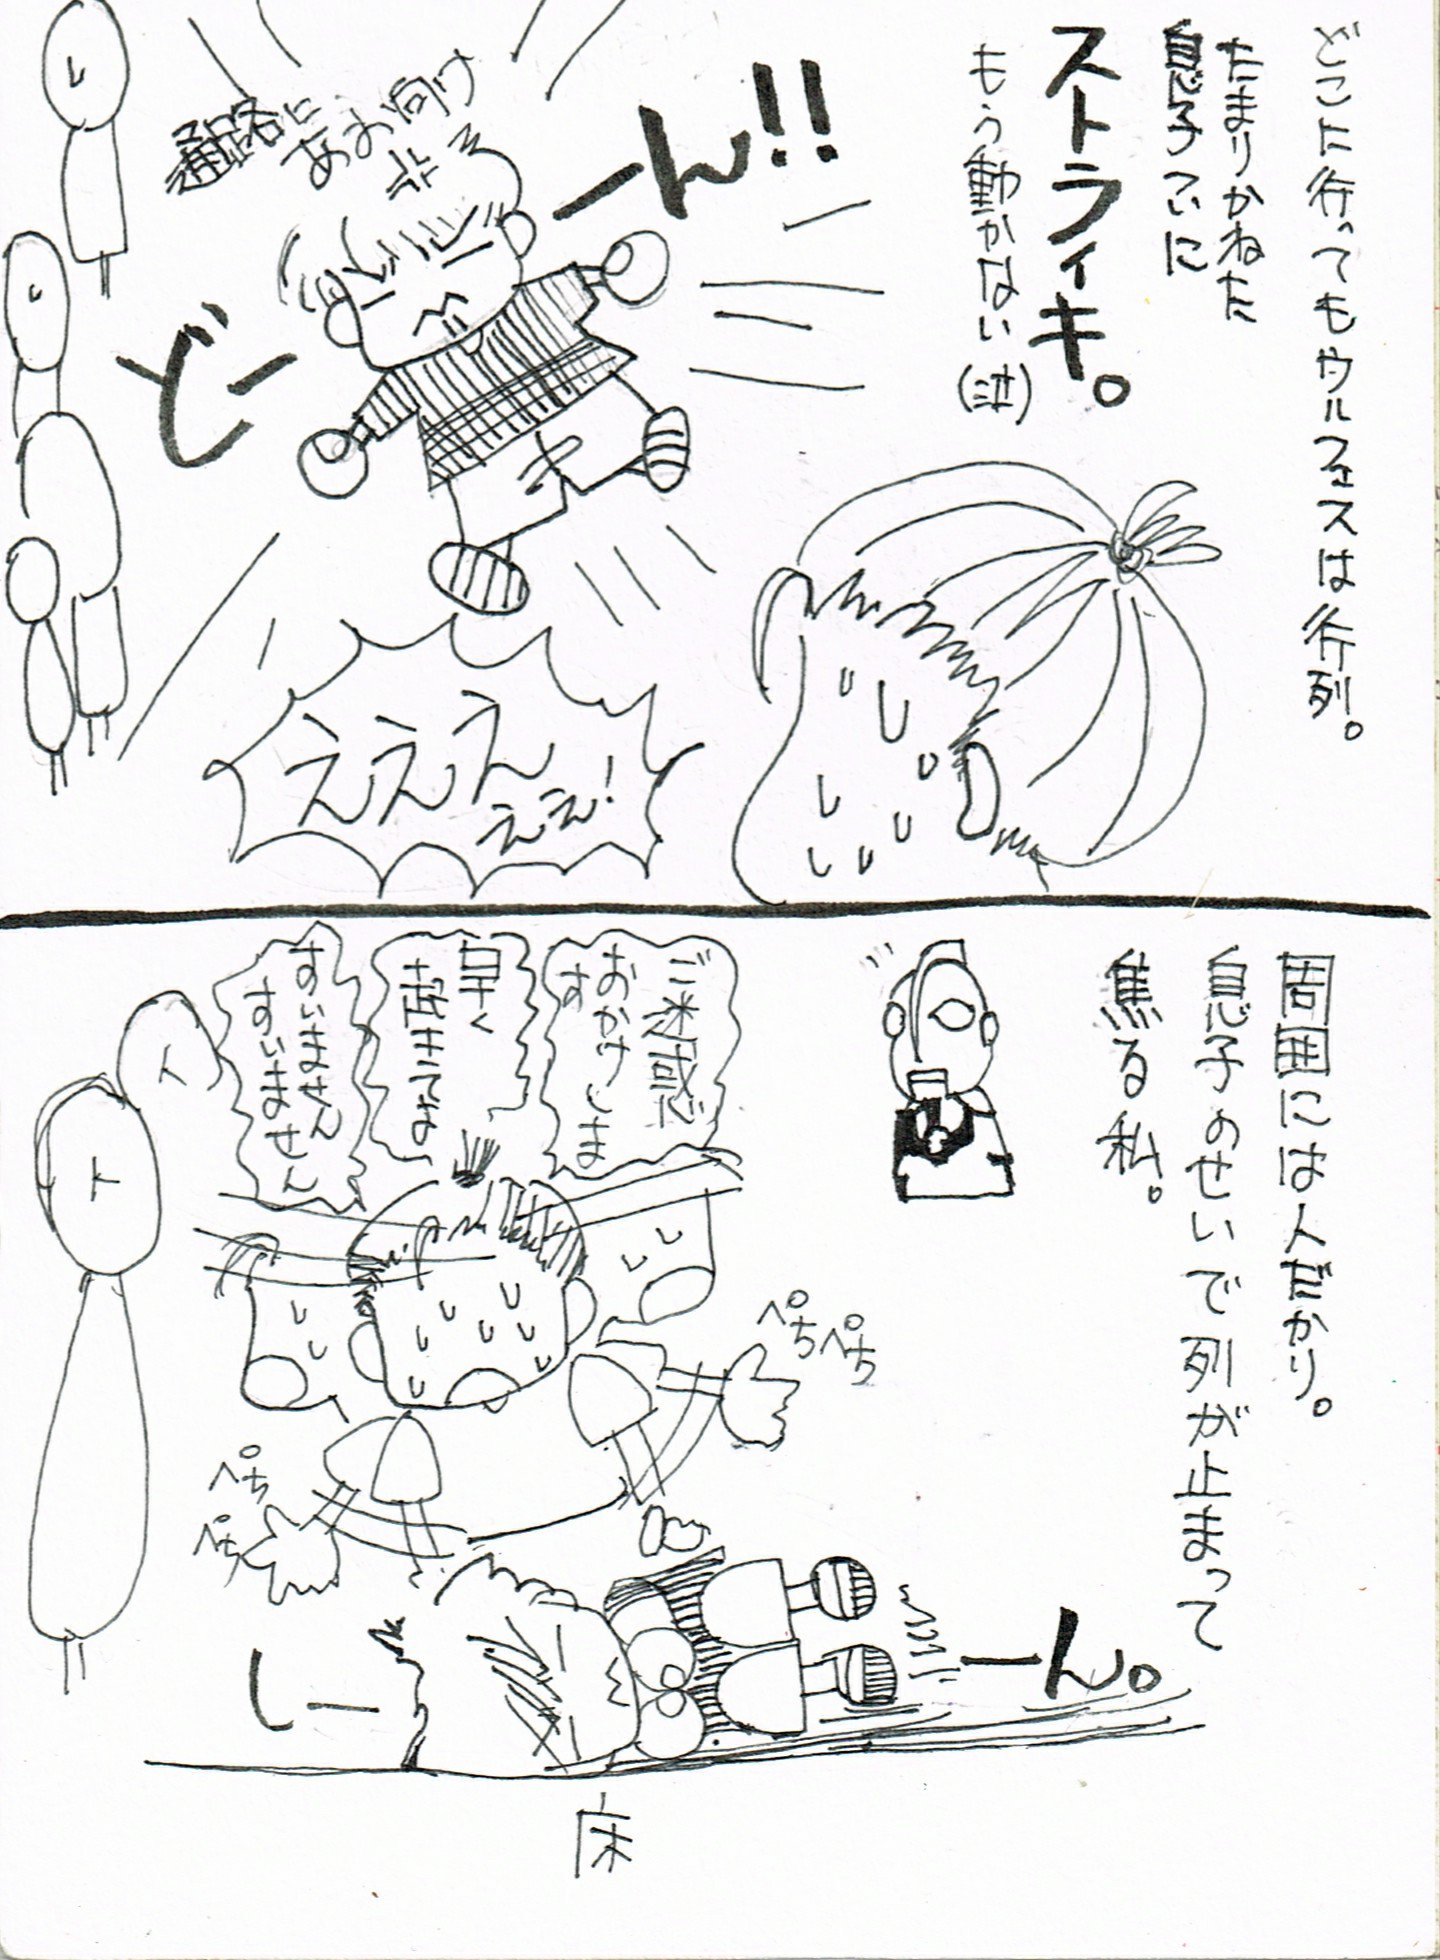 どこに行ってもウルフェスは行列。
たまりかねた
息子ついに
ストライキ。
もう動かない(泣)
どーーん!!
通路に
あお向け
えええ
ええ!
周囲には人だかり。
息子のせいで列が止まって
焦る私。
ご迷惑
おかけしま
す
早く
起きてよ
すいません
すいません
ぺちぺち
ぺち
ぺち
しーーん。
床